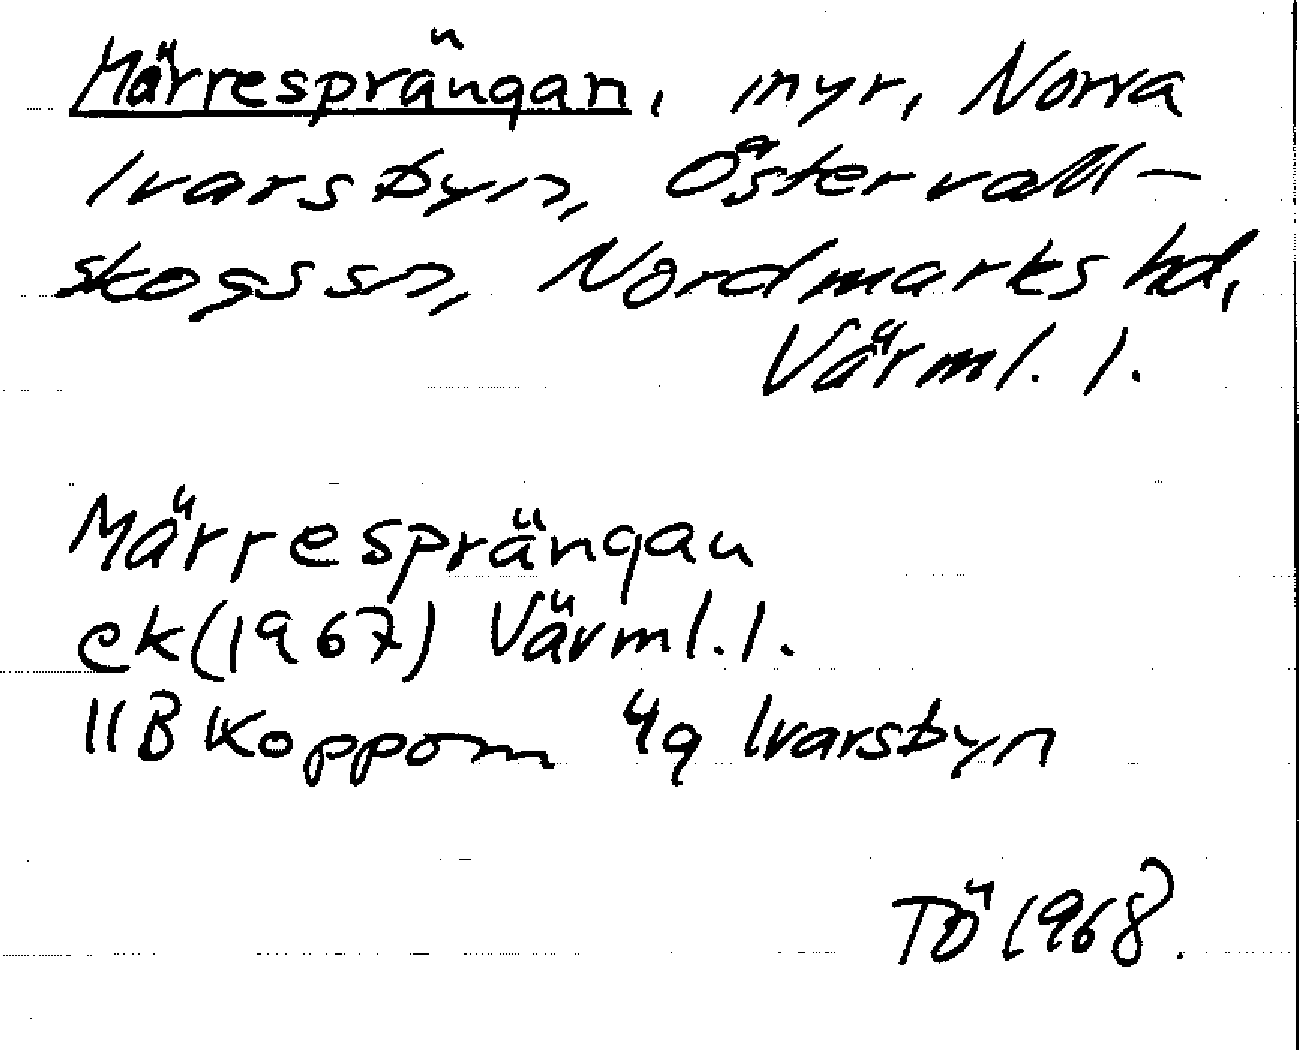 Märresprängan, myr, Norra
Ivarsbyn, Östervall-
skogs sn, Nordmarks hd,
Värml. l.
Märresprängan
ek(1967) Värml. l.
11B Koppom 4g Ivarsbyn
TÖ 1968.